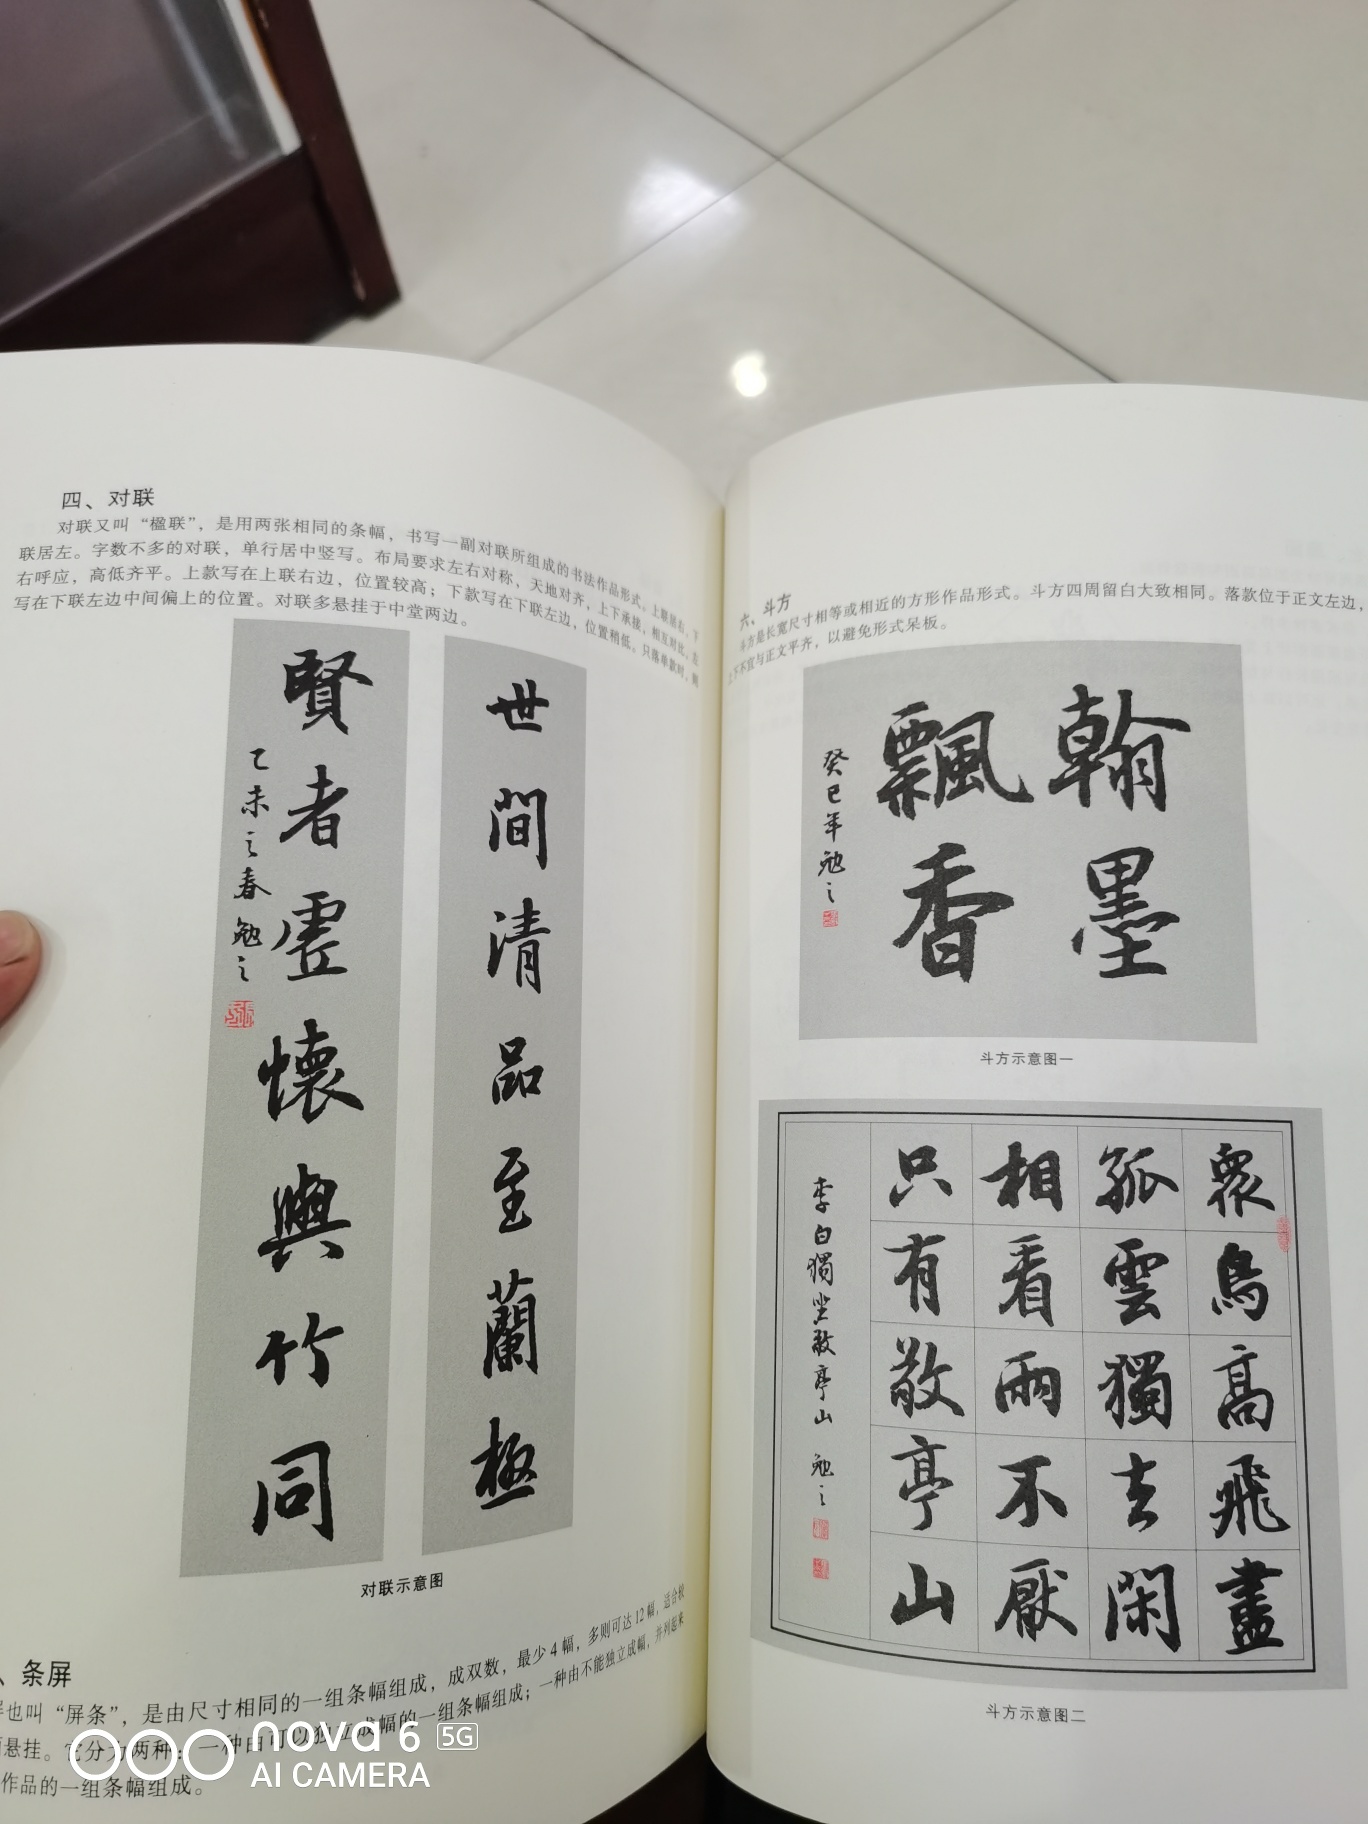 四、对联
对联又叫“楹联”，是用两张相同的条幅，书写一副对联所组成的书法作品形式。上联居右，下
联居左。字数不多的对联，单行居中竖写。布局要求左右对称，天地对齐，上下承接，相互对比，左
右呼应，高低齐平。上款写在上联右边，位置较高；下款写在下联左边，位置稍低。只落单款时，侧
写在下联左边中间偏上的位置。对联多悬挂于中堂两边。
世間清品至蘭極
賢者虛懷與竹同
乙未之春勉之
对联示意图
、条屏
也叫“屏条”，是由尺寸相同的一组条幅组成，成双数，最少4幅，多则可达12幅，适合较
悬挂。它分为两种：一种由可以独立成幅的一组条幅组成；一种由不能独立成幅，并列起来
作品的一组条幅组成。
六、斗方
斗方是长宽尺寸相等或相近的方形作品形式。斗方四周留白大致相同。落款位于正文左边，
上下不宜与正文平齐，以避免形式呆板。
翰墨
飄香
癸巳年勉之
斗方示意图一
衆鳥高飛盡
孤雲獨去閑
相看兩不厭
只有敬亭山
李白獨坐敬亭山 勉之
斗方示意图二
nova 6 5G
AI CAMERA